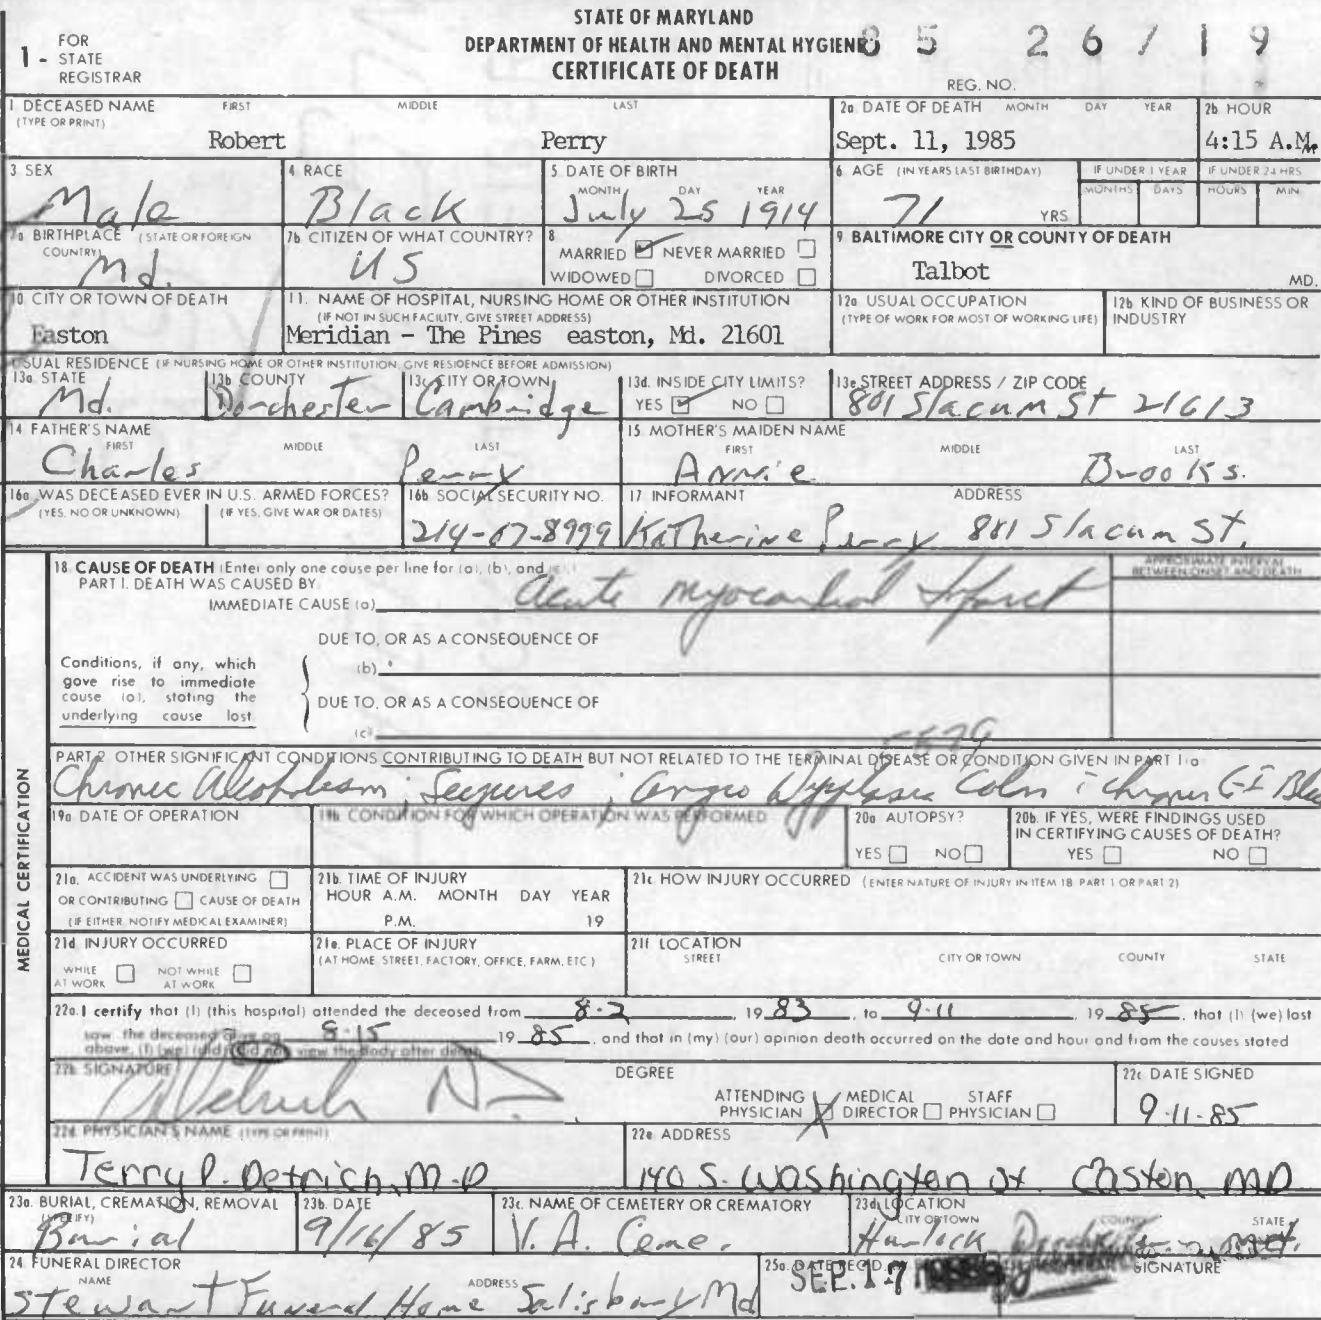 STATE OF MARYLAND
DEPARTMENT OF HEALTH AND MENTAL HYGIENE
CERTIFICATE OF DEATH
1 - FOR STATE REGISTRAR
85 26719
REG. NO.
1 DECEASED NAME (TYPE OR PRINT) FIRST MIDDLE LAST
Robert Perry
2a DATE OF DEATH MONTH DAY YEAR
Sept. 11, 1985
2b HOUR
4:15 A.M.
3 SEX
Male
4 RACE
Black
5 DATE OF BIRTH MONTH DAY YEAR
July 25 1914
6 AGE (IN YEARS LAST BIRTHDAY)
71 YRS
IF UNDER 1 YEAR MONTHS DAYS
IF UNDER 24 HRS HOURS MIN
7a BIRTHPLACE (STATE OR FOREIGN COUNTRY)
Md.
7b CITIZEN OF WHAT COUNTRY?
US
8 MARRIED NEVER MARRIED
WIDOWED DIVORCED
9 BALTIMORE CITY OR COUNTY OF DEATH
Talbot MD.
10 CITY OR TOWN OF DEATH
Easton
11. NAME OF HOSPITAL, NURSING HOME OR OTHER INSTITUTION
(IF NOT IN SUCH FACILITY, GIVE STREET ADDRESS)
Meridian - The Pines easton, Md. 21601
12a USUAL OCCUPATION
(TYPE OF WORK FOR MOST OF WORKING LIFE)
12b KIND OF BUSINESS OR INDUSTRY
USUAL RESIDENCE (IF NURSING HOME OR OTHER INSTITUTION, GIVE RESIDENCE BEFORE ADMISSION)
13a STATE
Md.
13b COUNTY
Dorchester
13c CITY OR TOWN
Cambridge
13d. INSIDE CITY LIMITS?
YES NO
13e STREET ADDRESS / ZIP CODE
801 Slacum St 21613
14 FATHER'S NAME FIRST MIDDLE LAST
Charles Perry
15 MOTHER'S MAIDEN NAME FIRST MIDDLE LAST
Annie Brooks.
16a WAS DECEASED EVER IN U.S. ARMED FORCES?
(YES, NO OR UNKNOWN) (IF YES, GIVE WAR OR DATES)
16b SOCIAL SECURITY NO.
214-07-8999
17 INFORMANT ADDRESS
Katherine Perry 881 Slacum St.
18 CAUSE OF DEATH (Enter only one cause per line for (a), (b), and (c).)
PART I. DEATH WAS CAUSED BY
IMMEDIATE CAUSE (a) acute myocardial Infarct
APPROXIMATE INTERVAL BETWEEN ONSET AND DEATH
Conditions, if any, which gave rise to immediate cause (a), stating the underlying cause last
DUE TO, OR AS A CONSEQUENCE OF
(b)
DUE TO, OR AS A CONSEQUENCE OF
(c)
PART 2 OTHER SIGNIFICANT CONDITIONS CONTRIBUTING TO DEATH BUT NOT RELATED TO THE TERMINAL DISEASE OR CONDITION GIVEN IN PART 1(a)
Chronic Alcoholism; Seizures; angio Dysplasia Colon c chronic G-I
19a DATE OF OPERATION
19b CONDITION FOR WHICH OPERATION WAS PERFORMED
20a AUTOPSY?
YES NO
20b. IF YES, WERE FINDINGS USED IN CERTIFYING CAUSES OF DEATH?
YES NO
MEDICAL CERTIFICATION
21a. ACCIDENT WAS UNDERLYING
OR CONTRIBUTING CAUSE OF DEATH
(IF EITHER, NOTIFY MEDICAL EXAMINER)
21b. TIME OF INJURY
HOUR A.M. MONTH DAY YEAR
P.M. 19
21c HOW INJURY OCCURRED (ENTER NATURE OF INJURY IN ITEM 18 PART 1 OR PART 2)
21d INJURY OCCURRED
WHILE AT WORK NOT WHILE AT WORK
21e. PLACE OF INJURY
(AT HOME, STREET, FACTORY, OFFICE, FARM, ETC)
21f LOCATION
STREET CITY OR TOWN COUNTY STATE
22a. I certify that (I) (this hospital) attended the deceased from 8-2, 1983, to 9-11 1985, that (I) (we) last
saw the deceased alive on 8-15 1985, and that in (my) (our) opinion death occurred on the date and hour and from the causes stated
above, (I) (we) (did) (did not) view the body after death
22b SIGNATURE DEGREE
ATTENDING PHYSICIAN MEDICAL DIRECTOR STAFF PHYSICIAN
22c DATE SIGNED
9-11-85
22d PHYSICIAN'S NAME (TYPE OR PRINT)
Terry P. Detrich, M.D
22e ADDRESS
140 S. Washington St. Easton, MD
23a. BURIAL, CREMATION, REMOVAL (SPECIFY)
Burial
23b. DATE
9/16/85
23c. NAME OF CEMETERY OR CREMATORY
V.A. Ceme.
23d. LOCATION CITY OR TOWN COUNTY STATE
Hurlock
24 FUNERAL DIRECTOR
NAME ADDRESS
Stewart Funeral Home Salisbury Md
25a. DATE REC'D.
SEP. 17
SIGNATURE